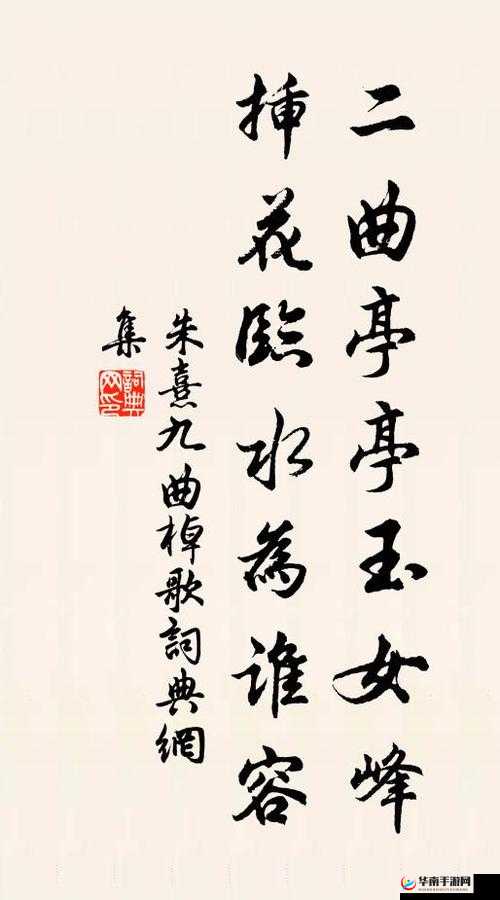 二曲亭亭玉女峰
挿花臨水為誰容
朱熹九曲棹歌詞典網
集
詞典
网印
华南手游网